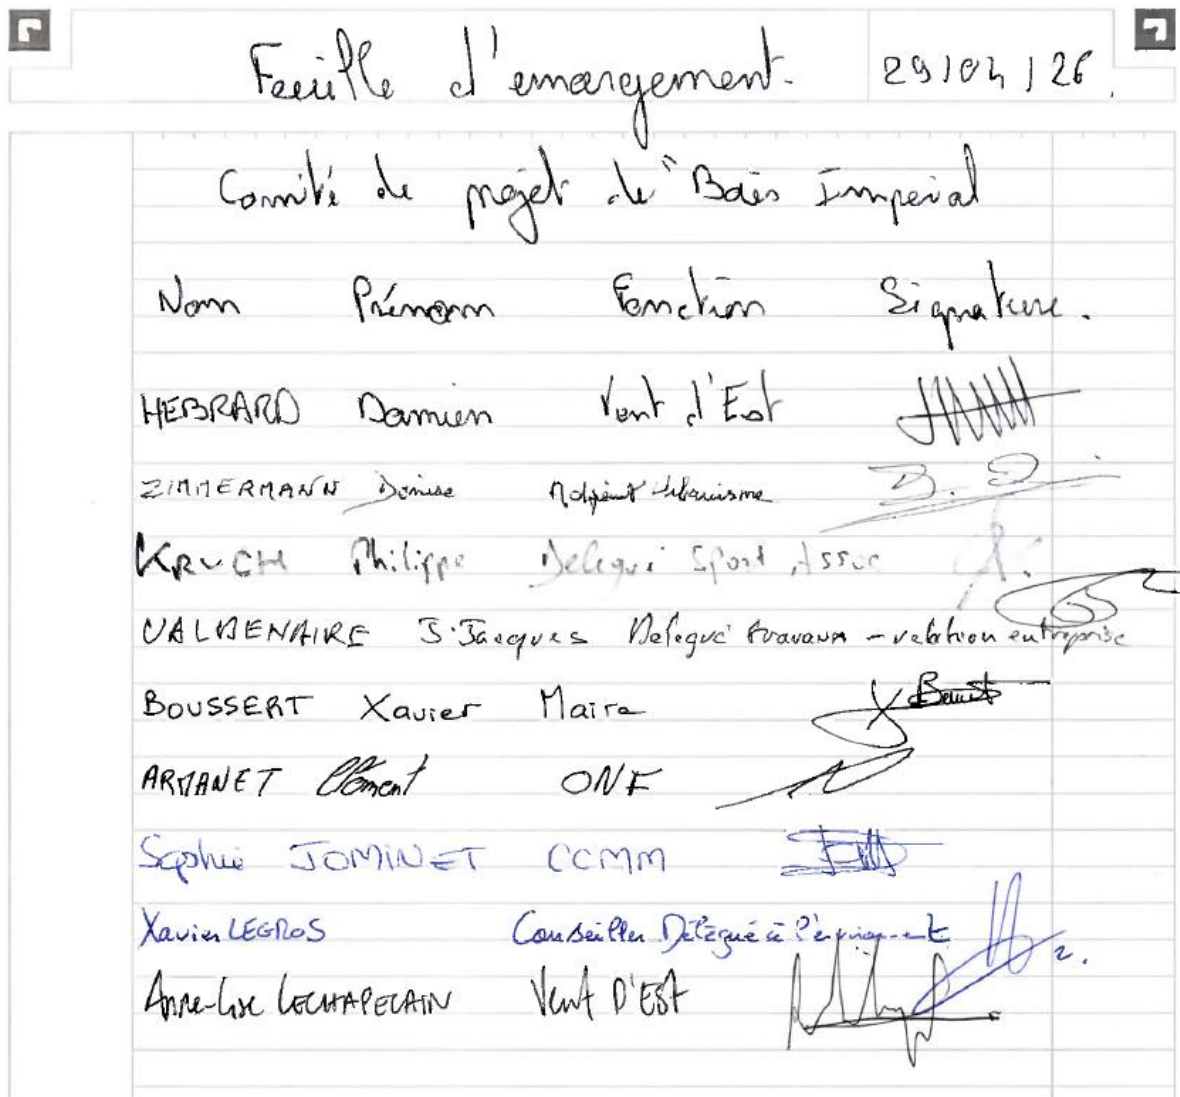 Feuille d'emargement. 29/04/26.
Comité de projet de "Bois Impérial
Nom Prénom Fonction Signature.
HEBRARD Damien Vent d'Est
ZIMMERMANN Denise Adjoint Urbanisme
KRUCH Philippe Délégué Sport Assoc
VALDENAIRE J.Jacques Délégué travaux - relation entreprise
BOUSSERT Xavier Maire
ARMANET Clément ONF
Sophie JOMINET CCMM
Xavier LEGROS Conseiller Délégué à l'environ-t
Anne-Lise LECHAPELAIN Vent D'EST